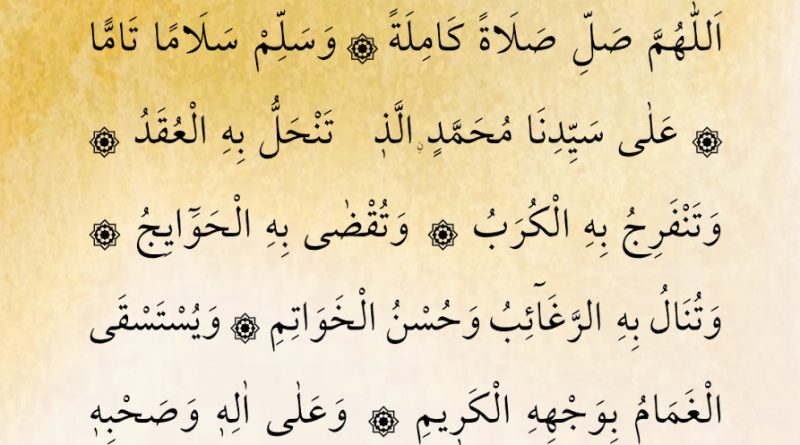 اَللّٰهُمَّ صَلِّ صَلَاةً كَامِلَةً ۞ وَسَلِّمْ سَلَامًا تَامًّا
عَلٰى سَيِّدِنَا مُحَمَّدٍ ۨالَّذ۪ي تَنْحَلُّ بِهِ الْعُقَدُ ۞
وَتَنْفَرِجُ بِهِ الْكُرَبُ ۞ وَتُقْضٰى بِهِ الْحَوَٓايِجُ ۞
وَتُنَالُ بِهِ الرَّغَٓائِبُ وَحُسْنُ الْخَوَاتِمِ ۞ وَيُسْتَسْقَى
الْغَمَامُ بِوَجْهِهِ الْكَر۪يمِ ۞ وَعَلٰى اٰلِه۪ وَصَحْبِه۪